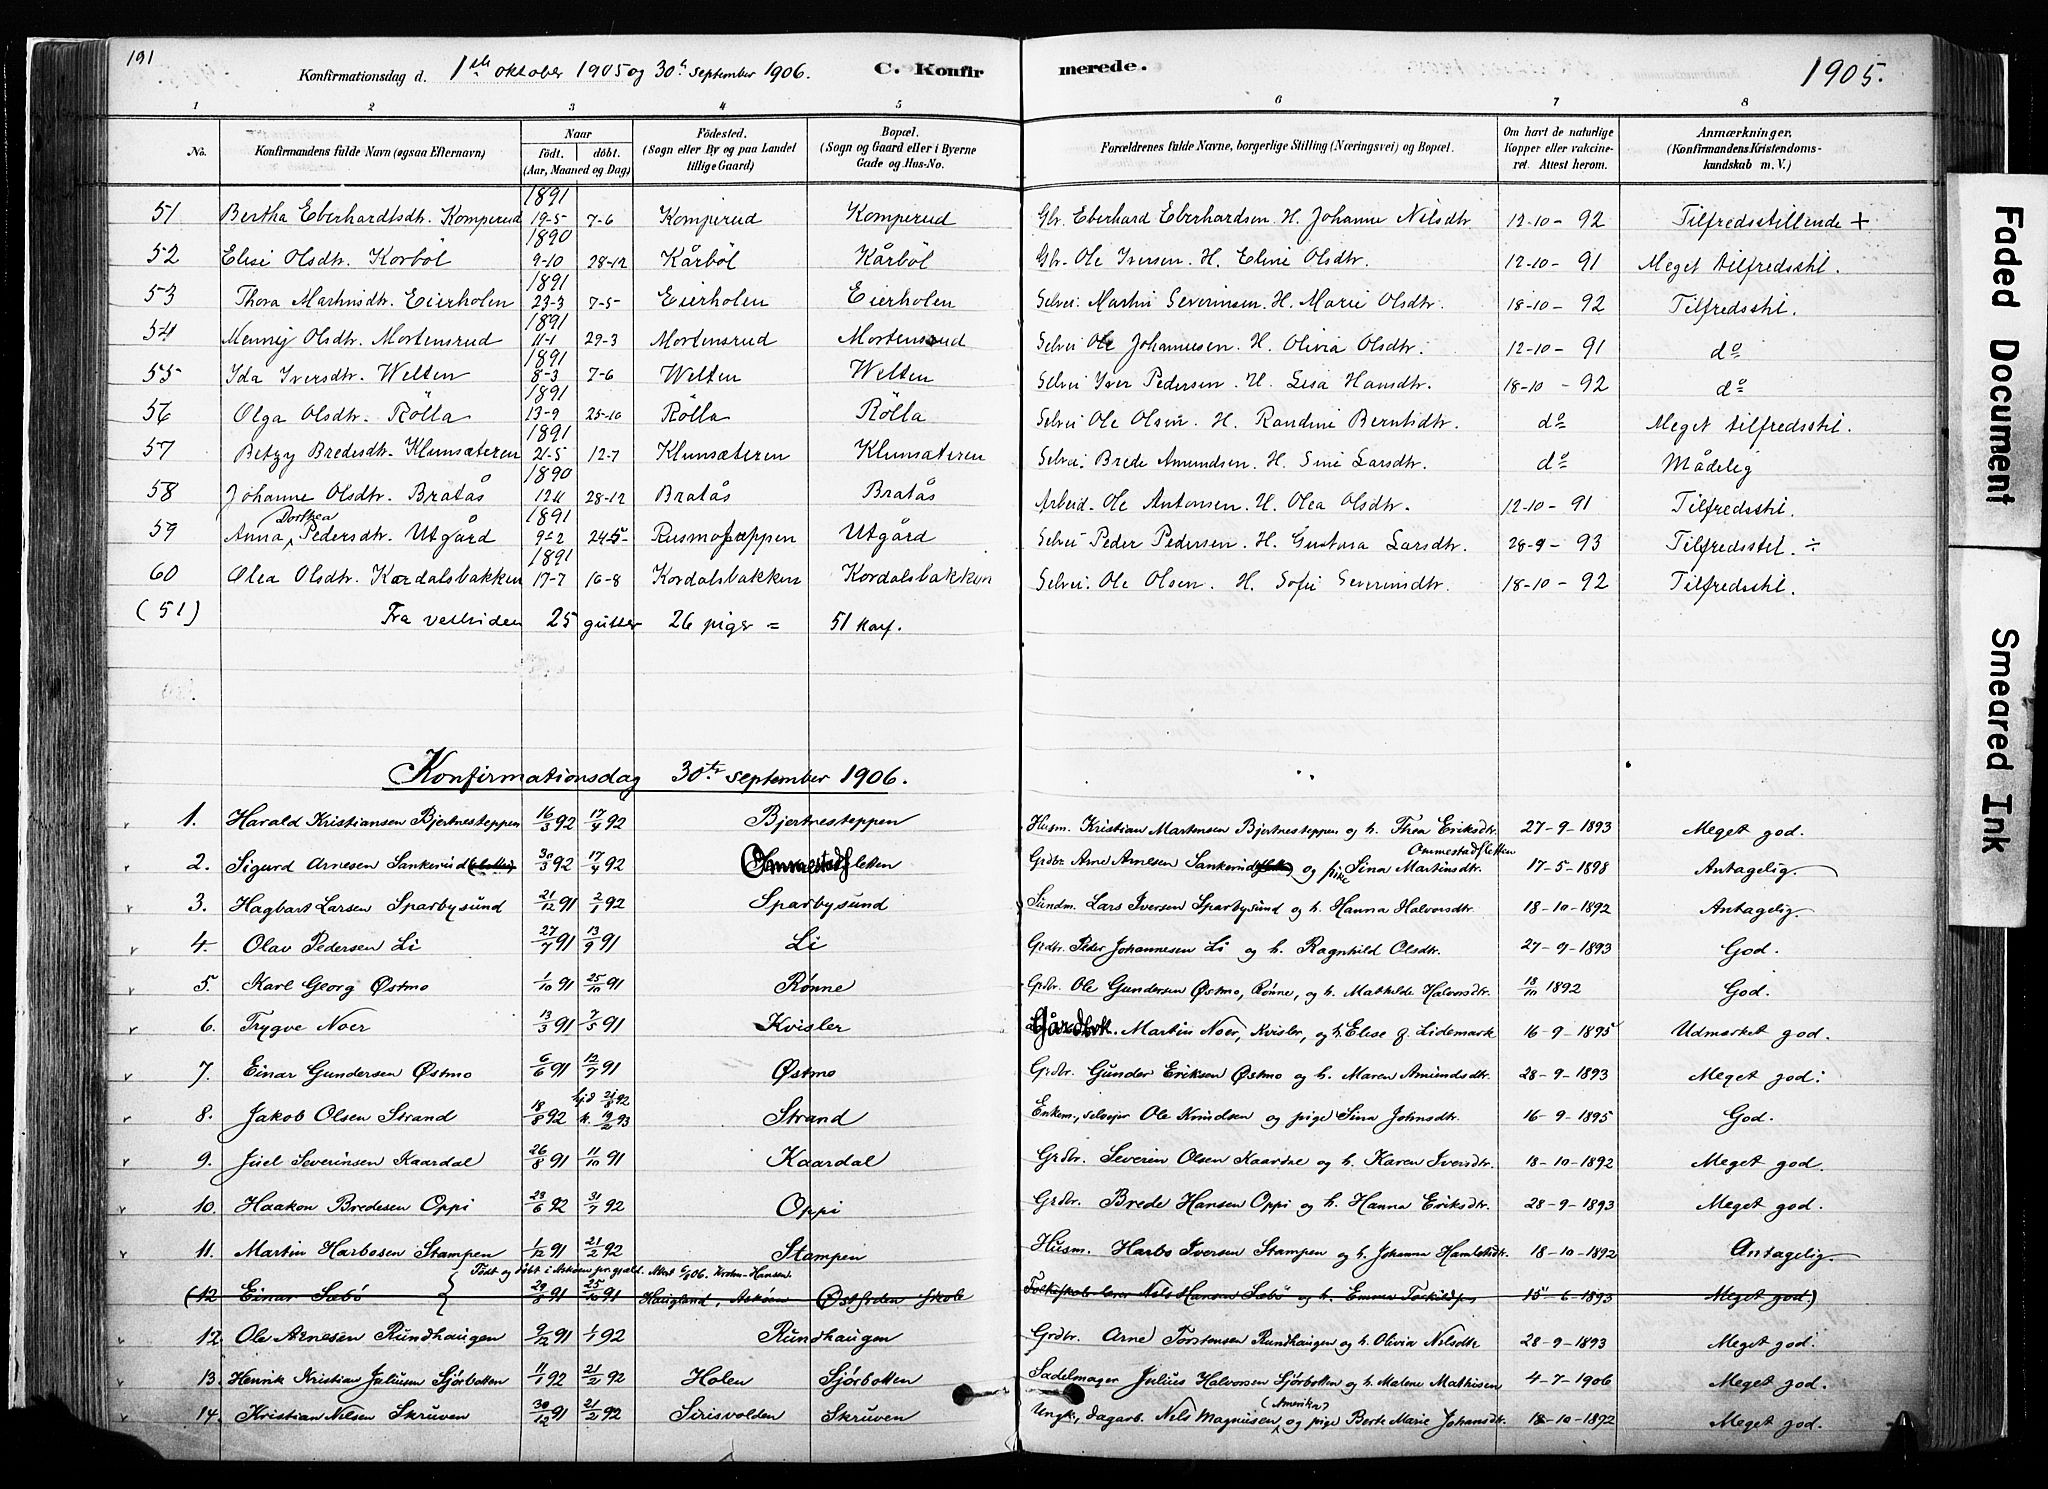 191
Konfirmationsdag d. 1ste oktober 1905 og 30te september 1906. C. Konfirmerede. 1905.
1 2 3 4 5 6 7 8
No. Konfirmandens fulde Navn (ogsaa Efternavn) Naar født, døbt. (Aar, Maaned og Dag) Fødested. (Sogn eller By og paa Landet tillige Gaard) Bopæl. (Sogn og Gaard eller i Byerne Gade og Hus-No. Forældrenes fulde Navne, borgerlige Stilling (Næringsvei) og Bopæl. Om havt de naturlige Kopper eller vaccineret. Attest herom. Anmærkninger. (Konfirmandens Kristendomskundskab m. V.)
51 Bertha Eberhardtsdtr. Komperud 1891 19-5 7-6 Komperud Komperud Gbr. Eberhard Eberhardsen. H. Johanne Nilsdtr. 12-10-92 Tilfredsstillende +
52 Elise Olsdtr. Korböl 1890 9-10 28-12 Kårböl Kårböl Gbr. Ole Iversen. H. Eline Olsdtr. 12-10-91 Meget tilfredsstil.
53 Thora Martinsdtr. Eierholen 1891 23-3 7-5 Eierholen Eierholen Selvei. Martin Severinsen. H. Marie Olsdtr. 18-10-92 Tilfredsstil.
54 Menny Olsdtr. Mortensrud 1891 11-1 29-3 Mortensrud Mortensrud Selvei Ole Johannesen. H. Olivia Olsdtr. 12-10-91 do
55 Ida Iversdtr. Welten 1891 8-3 7-6 Welten Welten Selvei Iver Pedersen. H. Lisa Hansdtr. 18-10-92 do
56 Olga Olsdtr. Rölla 1891 13-9 25-10 Rölla Rölla Selvei Ole Olsen. H. Randine Berntsdtr. do Meget tilfredsstil.
57 Betzy Bredesdtr. Klunsæteren 1891 21-5 12-7 Klunsæteren Klunsæteren Selvei. Brede Amundsen. H. Sine Larsdtr. do Mådelig
58 Johanne Olsdtr. Bratås 1890 12-11 28-12 Bratås Bratås Arbeid. Ole Antonsen. H. Olea Olsdtr. 12-10-91 Tilfredsstil.
59 Anna Dorthea Pedersdtr. Utgård 1891 9-2 24-5 Rusmojæppen Utgård Selvei Peder Pedersen. H. Gustava Larsdtr. 28-9-93 Tilfredsstil. ÷
60 Olea Olsdtr. Kordalsbakken 1891 17-7 16-8 Kordalsbakken Kordalsbakken Selvei. Ole Olsen. H. Sofie Severinsdtr. 18-10-92 Tilfredsstil.
(51) Fra vestsiden 25 gutter 26 piger = 51 konf.
Konfirmationsdag 30te september 1906.
1. Harald Kristiansen Bjertnesteppen 16/3 92 17/4 92 Bjertnesteppen Husm. Kristian Martensen Bjertnesteppen og h. Thea Eriksdtr. 27-9-1893 Meget god.
2. Sigurd Arnesen Sankerud 30/3 92 17/4 92 Ommestadsletten Grdbr. Arne Arnesen Sankerud og pike Sina Martinsdtr. Ommestadsletten 17-5-1898 Antagelig.
3. Hagbart Larsen Sparbysund 21/12 91 2/1 92 Sparbysund Sundm. Lars Iversen Sparbysund og h. Hanna Halvorsdtr. 18-10-1892 Antagelig.
4. Olav Pedersen Li 27/7 91 13/9 91 Li Grdbr. Peder Johannesen Li og h. Ragnhild Olsdtr. 27-9-1893 God.
5. Karl Georg Østmo 1/10 91 25/10 91 Rønne Grdbr. Ole Gundersen Østmo, Rønne, og h. Mathilde Halvorsdtr. 13/11 1892 God.
6. Trygve Noer 13/3 91 7/5 91 Kvisler Gårdbr. Martin Noer, Kvisler, og h. Elise f. Lidemark 16-9-1895 Udmærket god.
7. Einar Gundersen Østmo 6/6 91 12/7 91 Østmo Grdbr. Gunder Eriksen Østmo og h. Maren Amundsdtr. 28-9-1893 Meget god.
8. Jakob Olsen Strand 18/8 92 hjd 21/8 92 k. 19/2 93 Strand Enkem., selveier Ole Knudsen og pige Sina Johnsdtr. 16-9-1895 God.
9. Juel Severinsen Kaardal 26/8 91 11/10 91 Kaardal Grdbr. Severin Olsen Kaardal og h. Karen Iversdtr. 18-10-1892 Meget god.
10. Haakon Bredesen Oppi 23/6 92 31/7 92 Oppi Grdbr. Brede Hansen Oppi og h. Hanna Eriksdtr. 28-9-1893 Meget god.
11. Martin Harbosen Stampen 1/12 91 21/2 92 Stampen Husm. Harbo Iversen Stampen og h. Johanna Hamletsdtr. 18-10-1892 Antagelig.
Født og døbt i Askøen prgjæld. Attest 6/8 06. Krohn-Hansen.
(12 Einar Sæbö 29/8 91 25/10 91 Haugland, Askøen Østfjorden skole Folkeskolelærer Nils Hansen Sæbö og h. Emma 15-6-1893 Meget god)
12 Ole Arnesen Rundhaugen 9/12 91 1/1 92 Rundhaugen Grdbr. Arne Torstensen Rundhaugen og h. Olivia Nilsdtr. 28-9-1893 Meget god.
13. Henrik Kristian Juliusen Sjørbotten 11/1 92 21/2 92 Holen Sjørbotten Sadelmager Julius Halvorsen Sjørbotten og h. Malene Mathisen 4-7-1906 Meget god.
14. Kristian Nilsen Skruven 30/12 91 21/2 92 Sirisvolden Skruven Ungk., dagarb. Nils Magnusen (Amerika) og pige Berte Marie Johansdtr. 18-10-1892 Meget god.
Faded Document
Smeared Ink